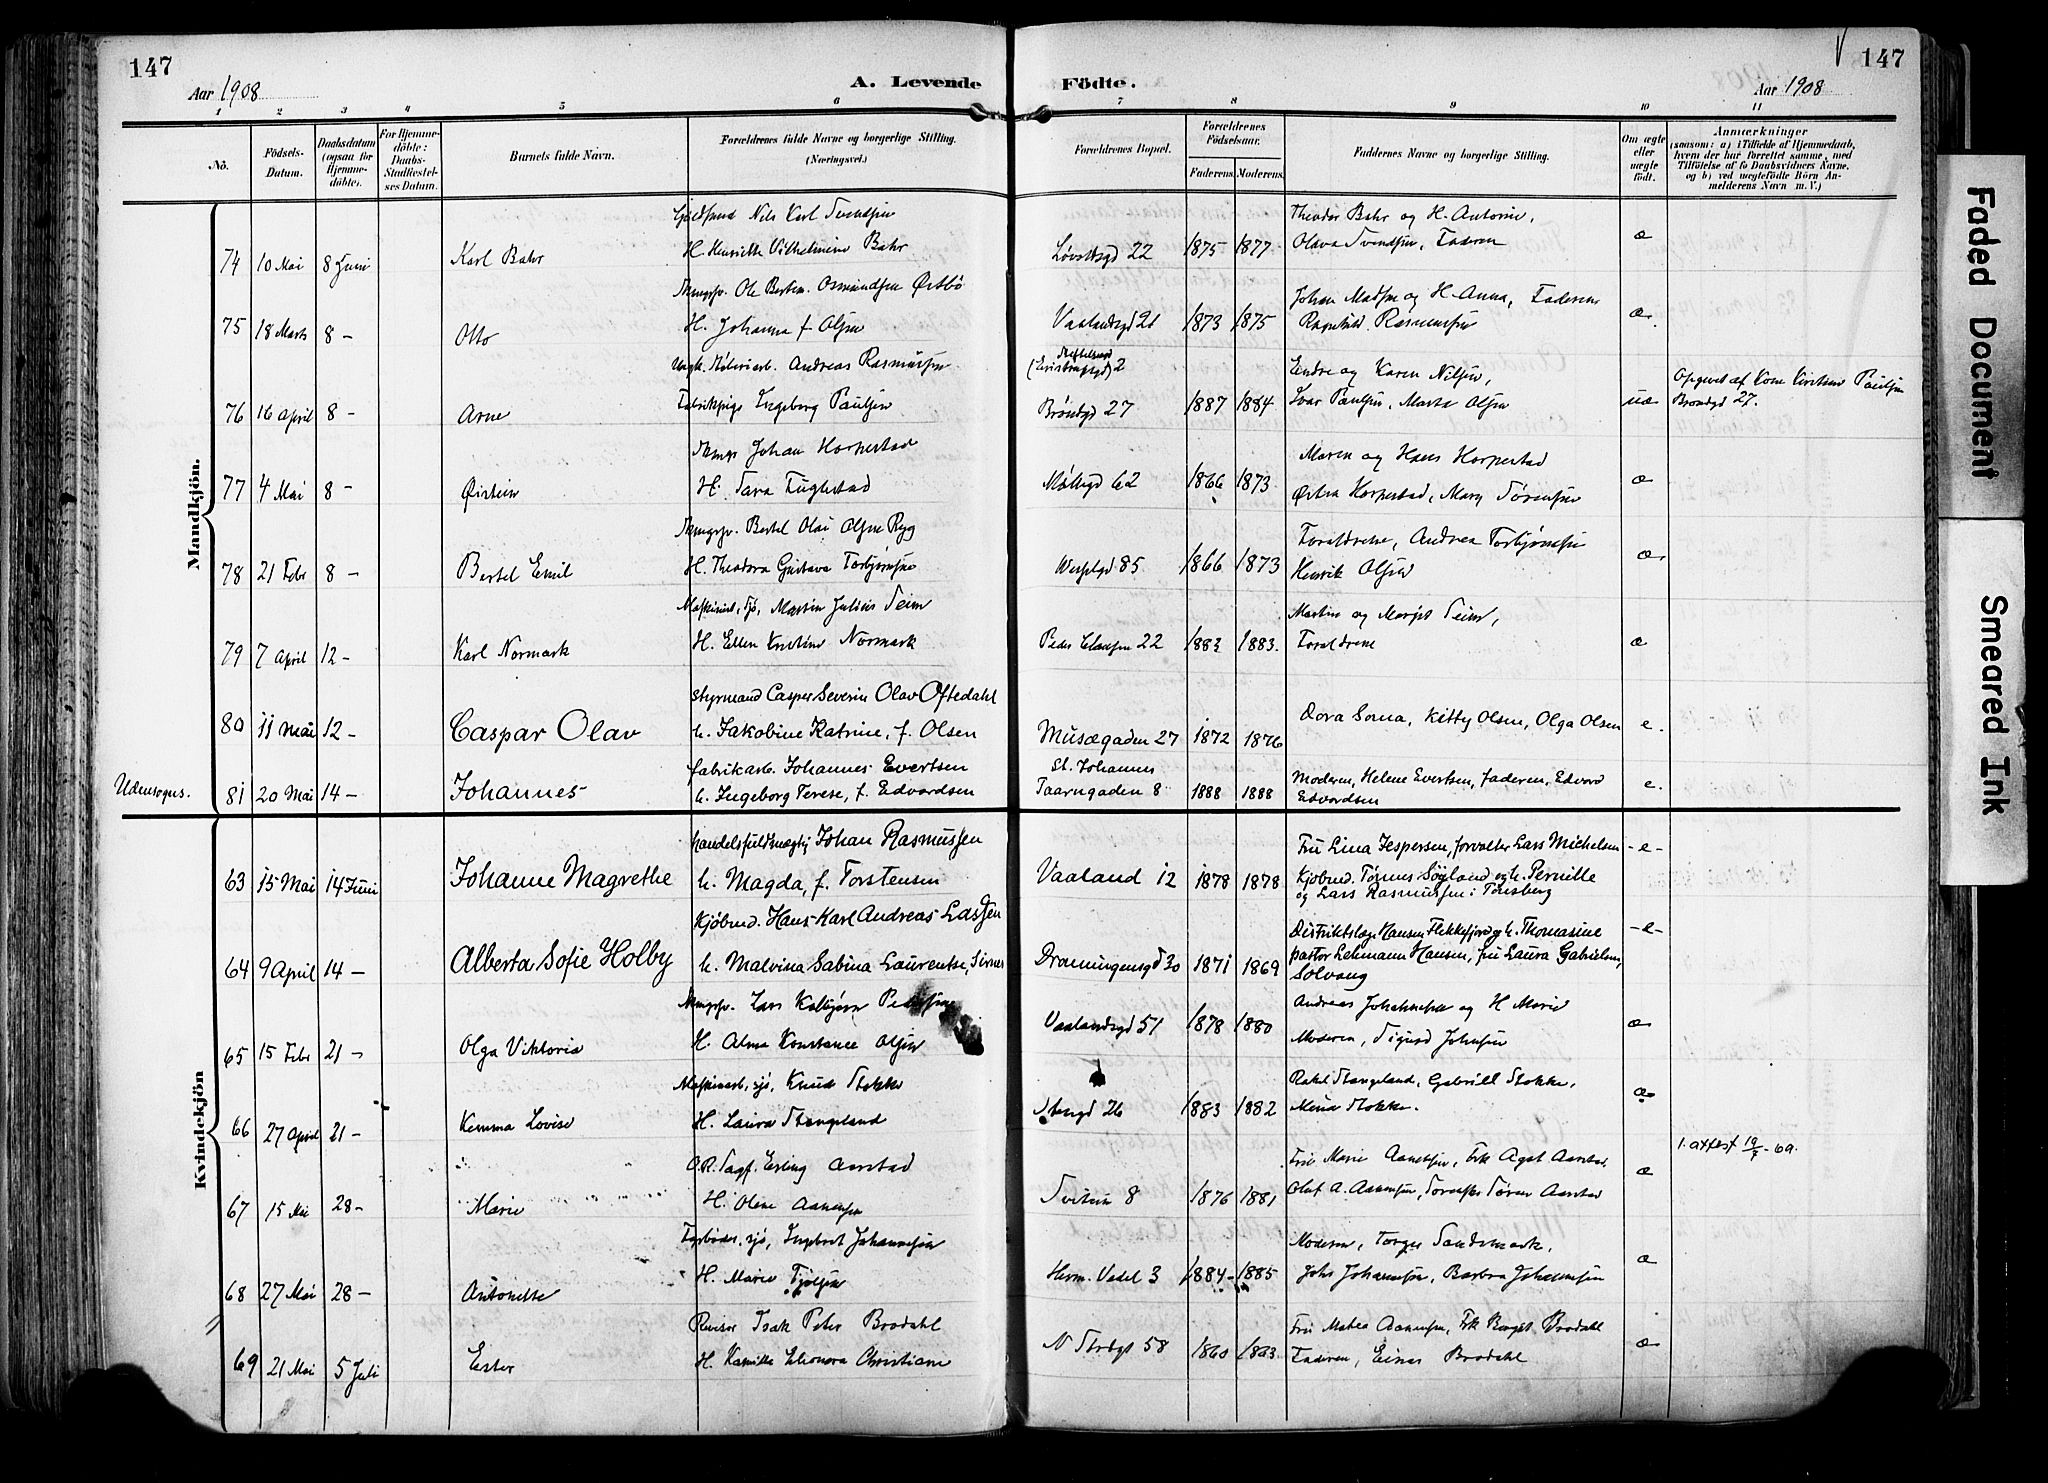 147
Aar 1908
A. Levende
Födte.
147
Aar 1908
1 2 3 4 5 6 7 8 9 10 11
No.
Födsels-Datum.
Daabsdatum (ogsaa for Hjemmedöbte).
For Hjemmedöbte: Daabs-Stadfestelses Datum.
Barnets fulde Navn.
Forældrenes fulde Navne og borgerlige Stilling. (Næringsvei.)
Forældrenes Bopæl.
Forældrenes Födselsaar.
Faderens. Moderens.
Faddernes Navne og borgerlige Stilling.
Om ægte eller uægte født.
Anmærkninger (saasom: a) i Tilfælde af Hjemmedaab, hvem der har forrettet samme, med Tilföielse af to Daabsvidners Navne. og b) ved uægtefödte Börn Anmelderens Navn m. V.)
Mandkjön.
Nils Karl Svendsen
Theodor Bahr og H. Antonie,
74 10 Mai 8 Juni Karl Bahr H. Henriette Vilhelmine Bahr 22 1875 1877 Olava Svendsen, Faderen æ
Ole Osmundsen Østbö
Johan Madsen og H. Anna, Faderen
75 18 Marts 8 - Otto H. Johanna f. Olsen Vaalandsgd 21 1873 1875 Ragnhild Rasmussen æ
Andreas Rasmussen
2
Endre og Karen Nilsen,
Opgivet af Kone Paulsen
76 16 April 8 - Arne Fabrikpige Ingeborg Paulsen Bröndgd 27 1887 1884 Ivar Paulsen, Marta Olsen uæ Bröndgd 27.
Johan Horpestad
Maren og Hans Horpestad
77 4 Mai 8 - Øistein H. Sara Fuglestad Möllegd 62 1866 1873 Horpestad, Mary Sörensen æ
Bertel Olai Olsen Ryg
Forældrene, Andrea Torbjörnsen
78 21 Febr 8 - Bertel Emil H. Theodora Gustava Torbjörnsen 85 1866 1873 Henrik Olsen æ
Maskinist, sjö, Martin Julius Seim
Martin og Seim,
79 7 April 12 - Karl Normark H. Ellen Kristine Normark Peder Clausen 22 1883 1883. Forældrene æ
Styrmand Casper Severin Olav Oftedahl
80 11 Mai 12 - Caspar Olav h. Jakobine Katrine, f. Olsen Musægaden 27 1872 1876 Dora Soma, Kitty Olsen, Olga Olsen e.
fabrikarb. Johannes Evertsen
St. Johannes
Moderen, Helene Evertsen, faderen, Edvard
Udensogns. 81 20 Mai 14 - Johannes h. Ingeborg Terese, f. Edvardsen Taarngaden 8 1888 1888 Edvardsen e.
Kvindekjön
handelsfuldmægtig Johan Rasmussen
Fru Lina Jespersen, forvalter Lars Michelsen -e-
63 15 Mai 14 Juni Johanne Magrethe h. Magda, f. Torstensen Vaaland 12 1878 1878 Kjöbmd. Tönnes Söyland og h. Pernille
og Lars Rasmussen i Tönsberg
Kjöbmd. Hans Karl Andreas Lassen
Distriktslæge Hansen Flekkefjord og h. Thomasine -e-
64 9 April 14 - Alberta Sofie Holby h. Malvina Sabina Laurentse, Sirnes Dronningensgd 30 1871 1869 pastor Lehmann Hansen, fru Laura Gabrielsen,
Solvang
Lars
Andreas Johannesen og H Marie
65 15 Febr 21 - Olga Viktoria H. Alma Konstance Olsen Vaalandsgd 51 1878 1880 Moderen, Sigurd Johnsen æ
Maskinarb, sjö, Knud Stokke
Rakel Stangeland, Gabriel Stokke,
66 27 April 21 - Kemma Lovise H. Laura Stangeland Stengd 26 1883 1882 Mina Stokke. æ
O.R. Sagf. Erling Aarstad
Fru Marie Aanensen, Frk Agat Aarstad,
1. attest 19/7-69.
67 15 Mai 28 - Marie H. Olene Aanensen 8 1876 1881 Olaf A. Aanensen, Sören Aarstad æ
Fyrböder, sjö, Ingebret Johannesen
Moderen, Torger Sandsmark,
68 27 Mai 28 - Antonette H. Marie Herm. Vedel 3 1884 1885 Johs Johannesen, Barbra Johannesen æ
Revisor Isak Peter Brodahl
Fru Matea Aanensen, Frk Brodahl
69 21 Mai 5 Juli Ester H. Kamilla Eleonora Christiane N Strdgt 58 1860 1863. Faderen, Einar Brodahl æ
Faded Document
Smeared Ink